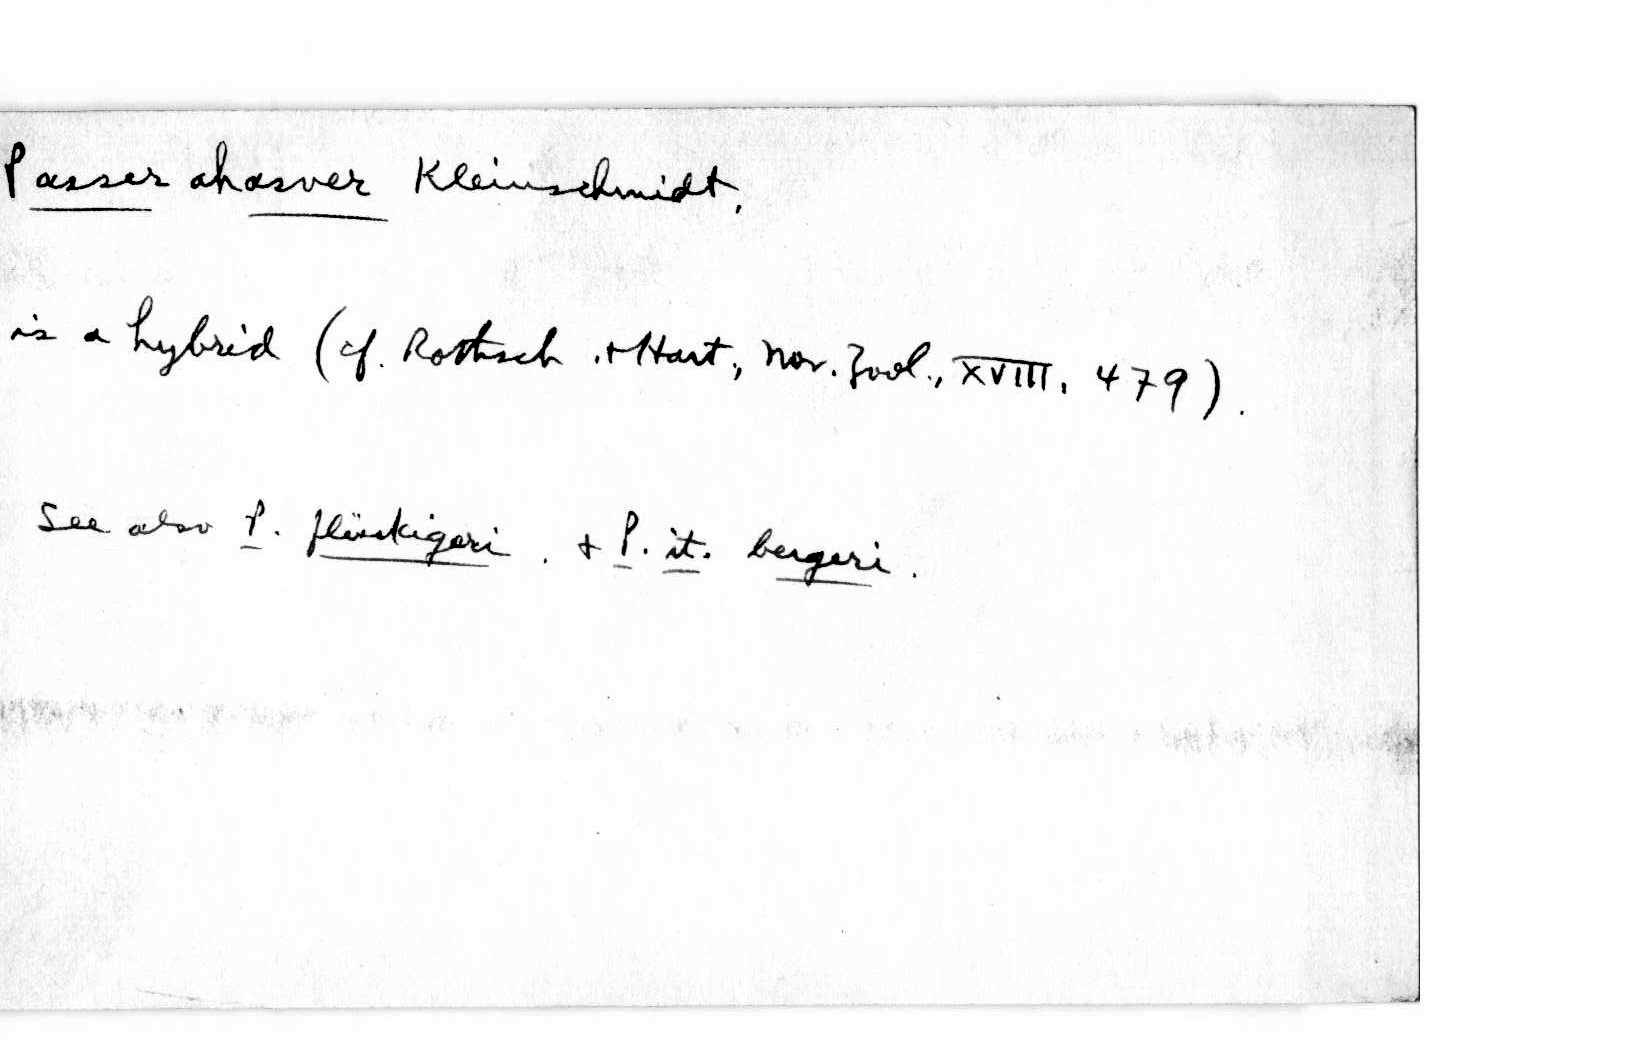 Passer ahasver Kleinschmidt,
is a hybrid (cf. Rothsch. + Hart., Nov. Zool., XVIII, 479).
See also P. flückigeri. + P. it. bergeri.